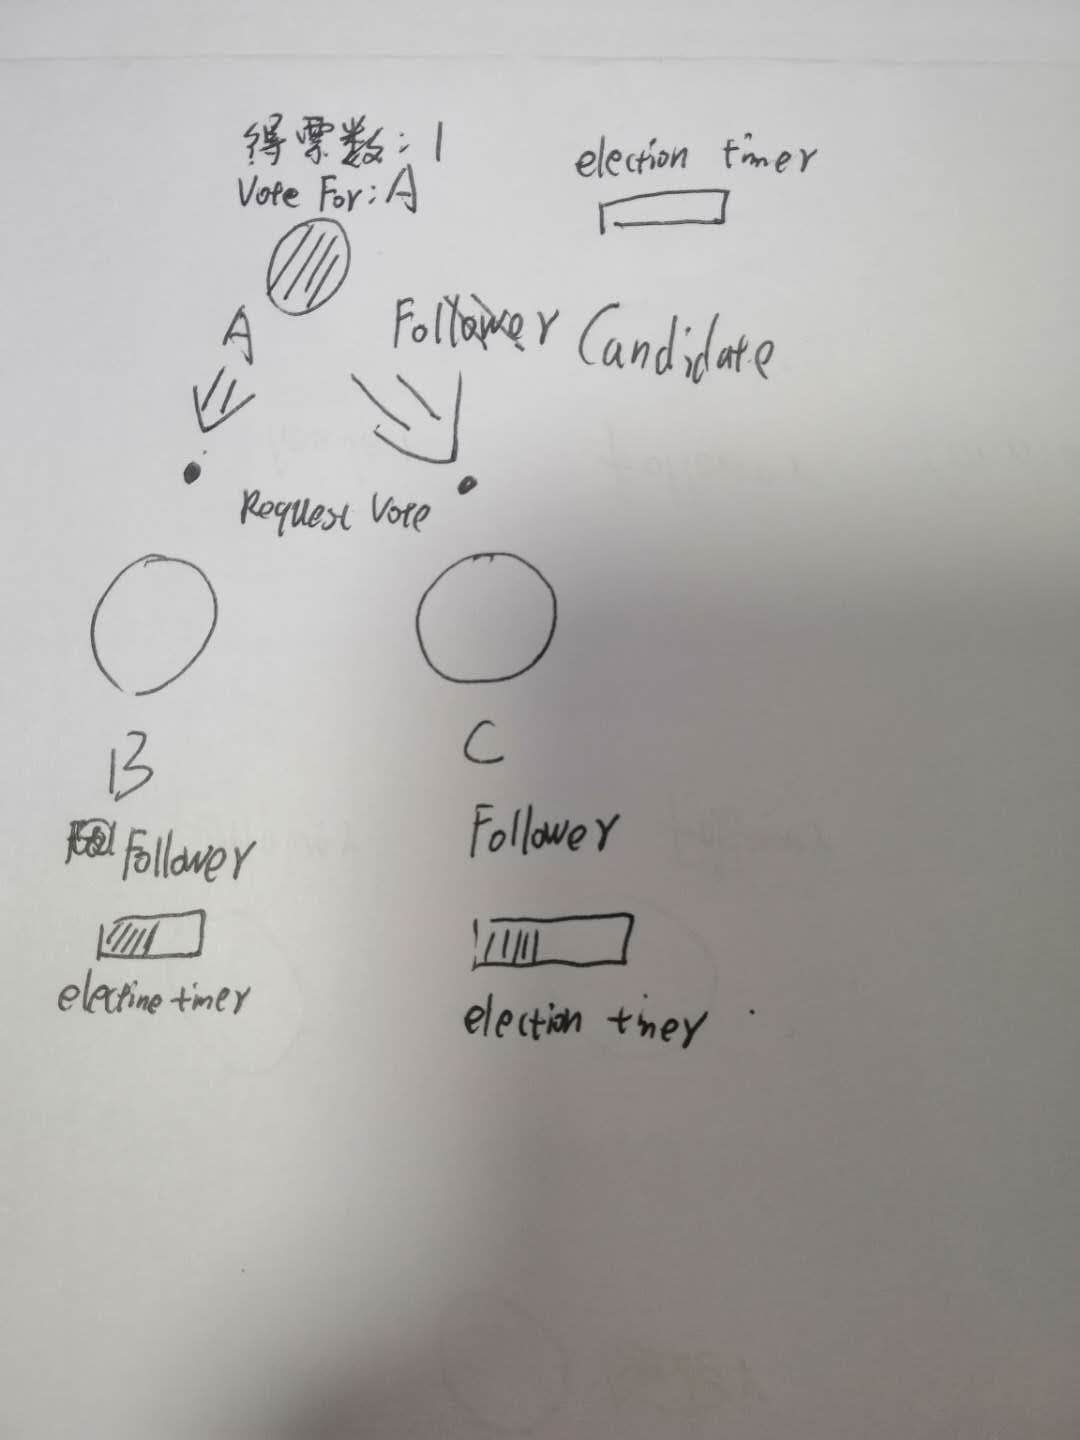 得票数：1
Vote For: A
election timer
A
Follower Candidate
Request Vote
B
C
Follower
Follower
electine timer
election timer